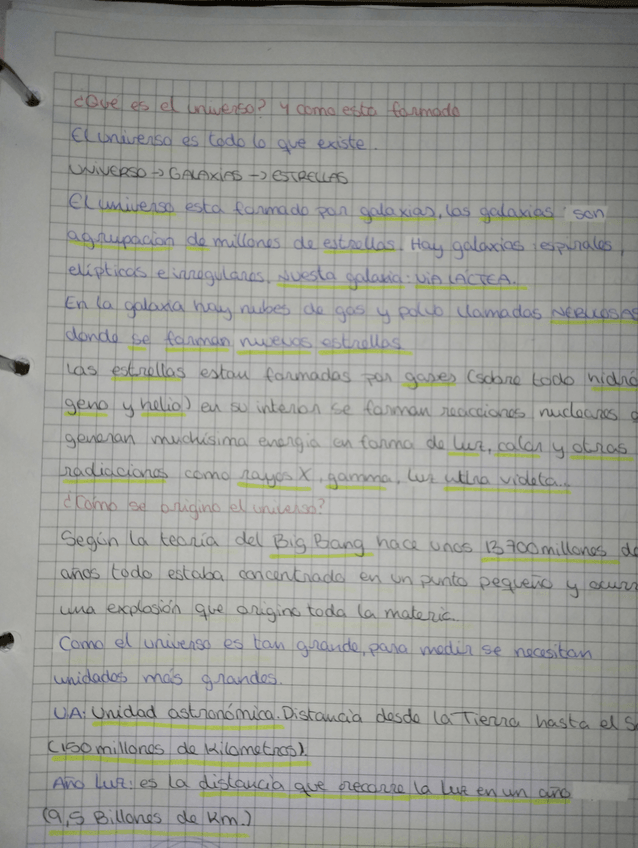 ¿Que es el universo? y como esta formado
El universo es todo lo que existe.
UNIVERSO → GALAXIAS → ESTRELLAS
El universo esta formado por galaxias, las galaxias son
agrupacion de millones de estrellas. Hay galaxias espirales,
elípticas e irregulares. Nuesta galaxia: VIA LACTEA.
En la galaxia hay nubes de gas y polvo llamadas NEBULOSAS
donde se forman nuevas estrellas
Las estrellas estan formadas por gases (sobre todo hidró
geno y helio) en su interior se forman reacciones nucleares q
generan muchísima energía en forma de luz, calor y otras
radiaciones como rayos X, gamma, luz ultra violeta...
¿Cómo se origino el universo?
Según la teoría del Big Bang hace unos 13700 millones de
años todo estaba concentrado en un punto pequeño y ocurr
una explosión que origino toda la materia.
Como el universo es tan grande, para medir se necesitan
unidades más grandes.
UA: Unidad astronómica. Distancia desde la Tierra hasta el S
(150 millones de Kilometros).
Año luz: es la distancia que recorre la luz en un año
(9,5 Billones de Km.)